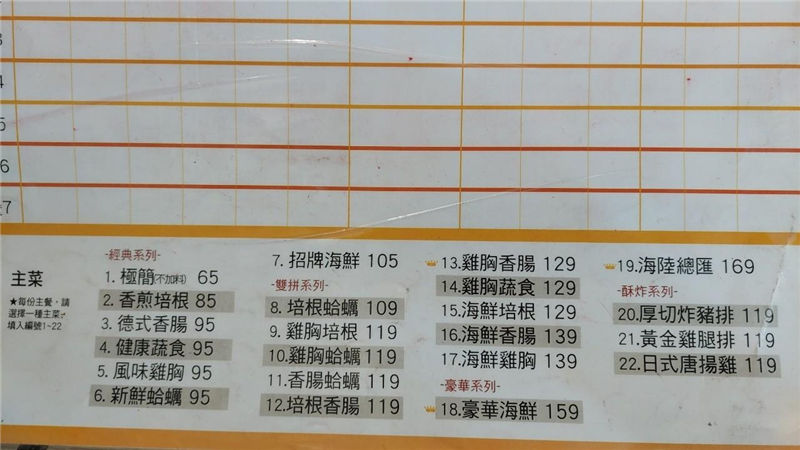 4
5
6
7
主菜
★每份主餐，請
選擇一種主菜，
填入編號1-22
-經典系列-
1. 極簡(不加料) 65
2. 香煎培根 85
3. 德式香腸 95
4. 健康蔬食 95
5. 風味雞胸 95
6. 新鮮蛤蠣 95
7. 招牌海鮮 105
-雙拼系列-
8. 培根蛤蠣 109
9. 雞胸培根 119
10.雞胸蛤蠣 119
11.香腸蛤蠣 119
12.培根香腸 119
13.雞胸香腸 129
14.雞胸蔬食 129
15.海鮮培根 129
16.海鮮香腸 139
17.海鮮雞胸 139
-豪華系列-
18.豪華海鮮 159
19.海陸總匯 169
-酥炸系列-
20.厚切炸豬排 119
21.黃金雞腿排 119
22.日式唐揚雞 119